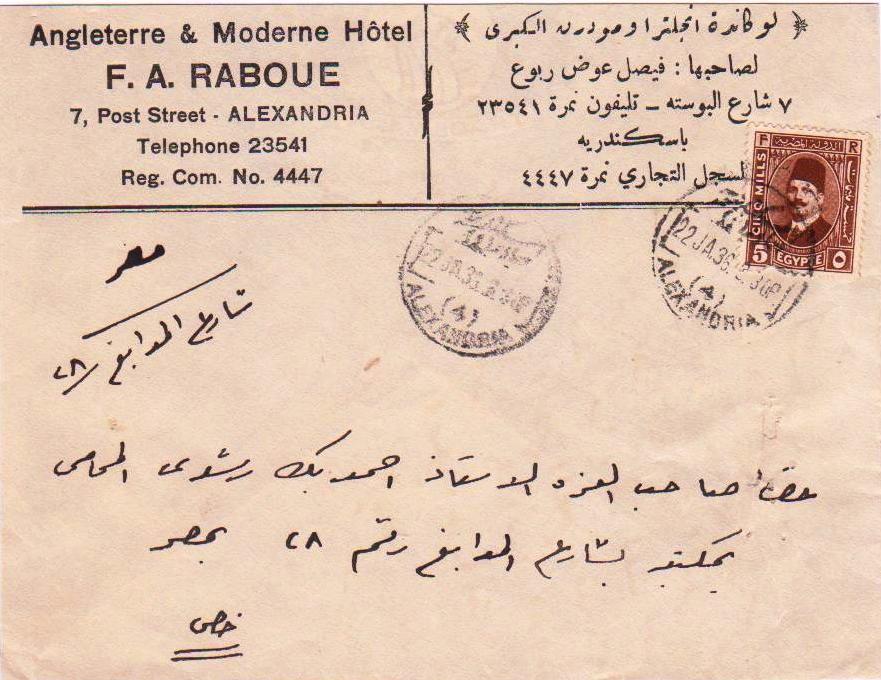 Angleterre & Moderne Hôtel
F. A. RABOUE
7, Post Street - ALEXANDRIA
Telephone 23541
Reg. Com. No. 4447
لوكاندة انجلترا ومودرن الكبرى
لصاحبها : فيصل عوض ربوع
٧ شارع البوسته - تليفون نمرة ٢٣٥٤١
باسكندريه
لسجل التجاري نمرة ٤٤٤٧
F R
CINQ MILLS
5 EGYPTE ٥
22 JA.36
(4)
ALEXANDRIA
22 JA.36
(4)
ALEXANDRIA
مصر
شارع المدابغ ٢٨
حضرة صاحب العزه الاستاذ احمد بك رشدى المحامى
بمكتبه بشارع المدابغ رقم ٢٨ بمصر
خاص